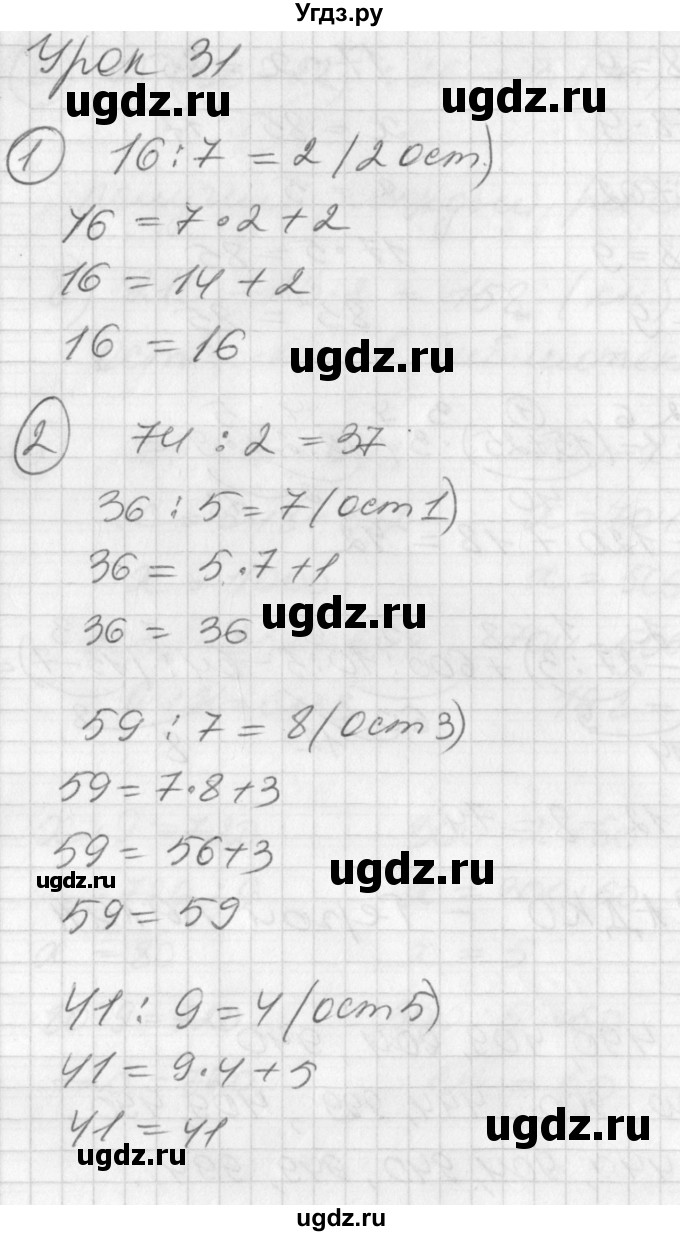 Угдз.ру
Урок 31
ugdz.ru ugdz.ru
1 16 : 7 = 2 (2 ост.)
16 = 7 · 2 + 2
16 = 14 + 2
16 = 16
ugdz.ru
2 74 : 2 = 37
36 : 5 = 7 (ост 1)
36 = 5 · 7 + 1
ugdz.ru
36 = 36
59 : 7 = 8 (ост 3)
59 = 7 · 8 + 3
59 = 56 + 3
ugdz.ru ugdz.ru
59 = 59
41 : 9 = 4 (ост 5)
41 = 9 · 4 + 5
41 = 41
ugdz.ru
ugdz.ru
ugdz.ru